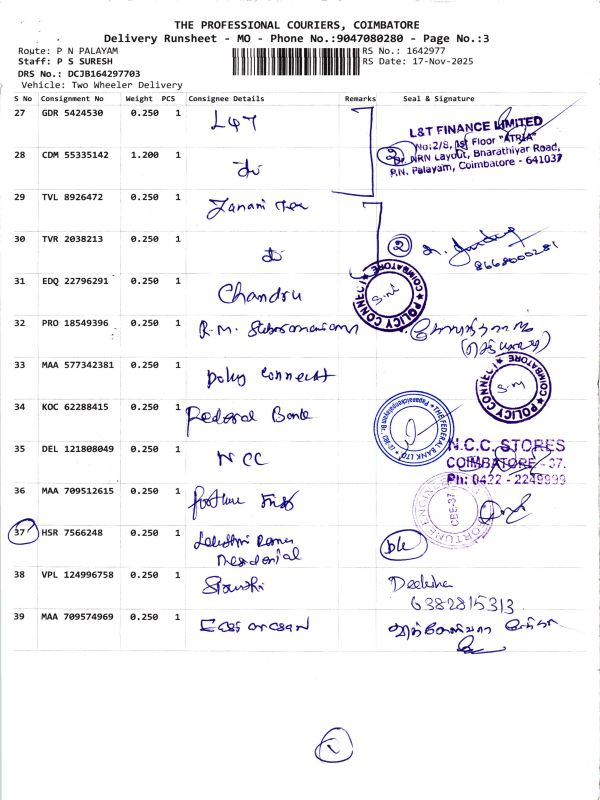 THE PROFESSIONAL COURIERS, COIMBATORE
Delivery Runsheet - MO - Phone No.:9047080280 - Page No.:3
Route: P N PALAYAM
RS No.: 1642977
Staff: P S SURESH
RS Date: 17-Nov-2025
DRS No.: DCJB164297703
Vehicle: Two Wheeler Delivery
S No Consignment No Weight PCS Consignee Details Remarks Seal & Signature
27 GDR 5424530 0.250 1 L&T
L&T FINANCE LIMITED
No:2/8, 1st Floor "ATRIA"
NRN Layout, Bharathiyar Road,
P.N. Palayam, Coimbatore - 641037
2
28 CDM 55335142 1.200 1 do
29 TVL 8926472 0.250 1 Janani
30 TVR 2038213 0.250 1 do 2
8668000281
31 EDQ 22796291 0.250 1 Chandru
POLICY CONNECT COIMBATORE
32 PRO 18549396 0.250 1 R.M. Subramaniam
33 MAA 577342381 0.250 1 Policy Connect
POLICY CONNECT COIMBATORE
34 KOC 62288415 0.250 1 Federal Bank
THE FEDERAL BANK LTD
35 DEL 121808049 0.250 1 NCC
N.C.C. STORES
COIMBATORE - 37.
Ph: 0422 - 2249999
36 MAA 709512615 0.250 1 fortune Engs
FORTUNE ENGINEERS
CBE-37
37 HSR 7566248 0.250 1
38 VPL 124996758 0.250 1
Deeksha
6382815313
39 MAA 709574969 0.250 1